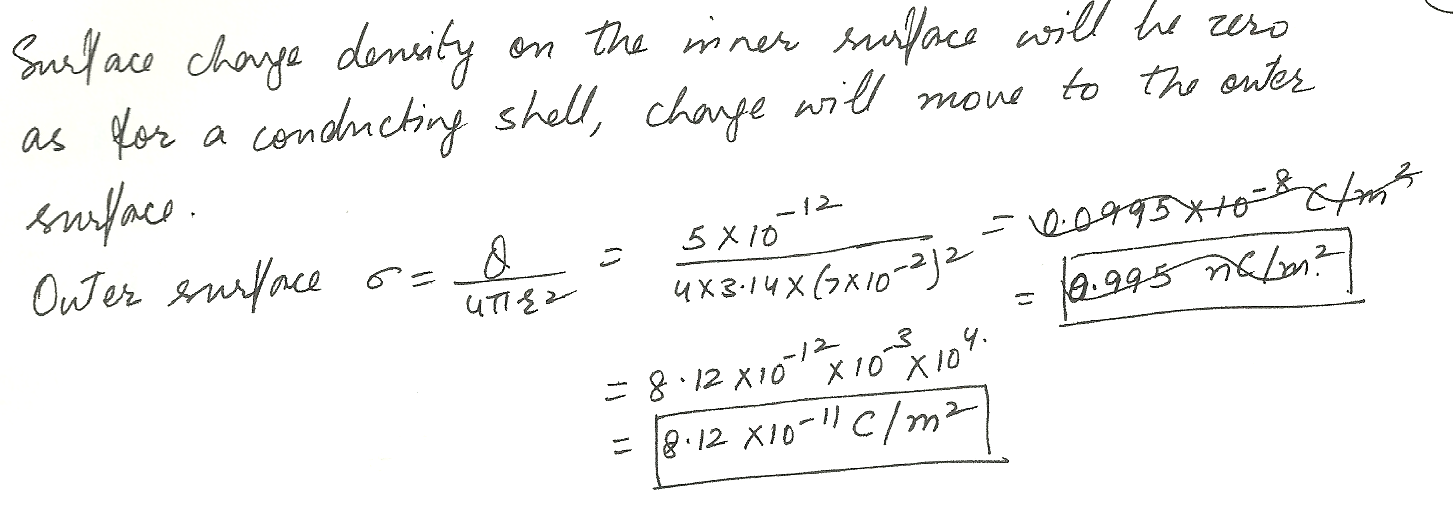 Surface charge density on the inner surface will be zero
as for a conducting shell, charge will move to the outer
surface.
Outer surface σ = Q / 4πr² = 5 × 10⁻¹² / 4×3.14×(7×10⁻²)² = 0.0995 × 10⁻⁸ C/m²
= 0.995 nC/m²
= 8.12 × 10⁻¹² × 10⁻³ × 10⁴.
= 8.12 × 10⁻¹¹ C/m²